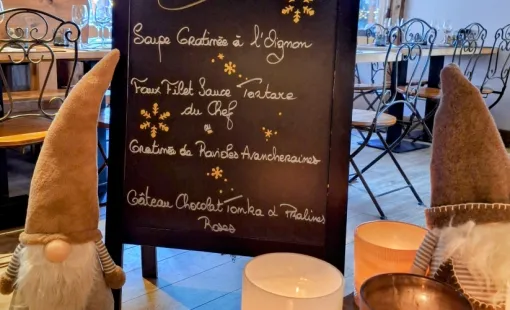 Soupe Gratinée à l'Oignon
Faux Filet Sauce Tartare
du Chef
Gratinée de Ravioles Avancheraines
Gâteau Chocolat Tonka & Pralines
Roses